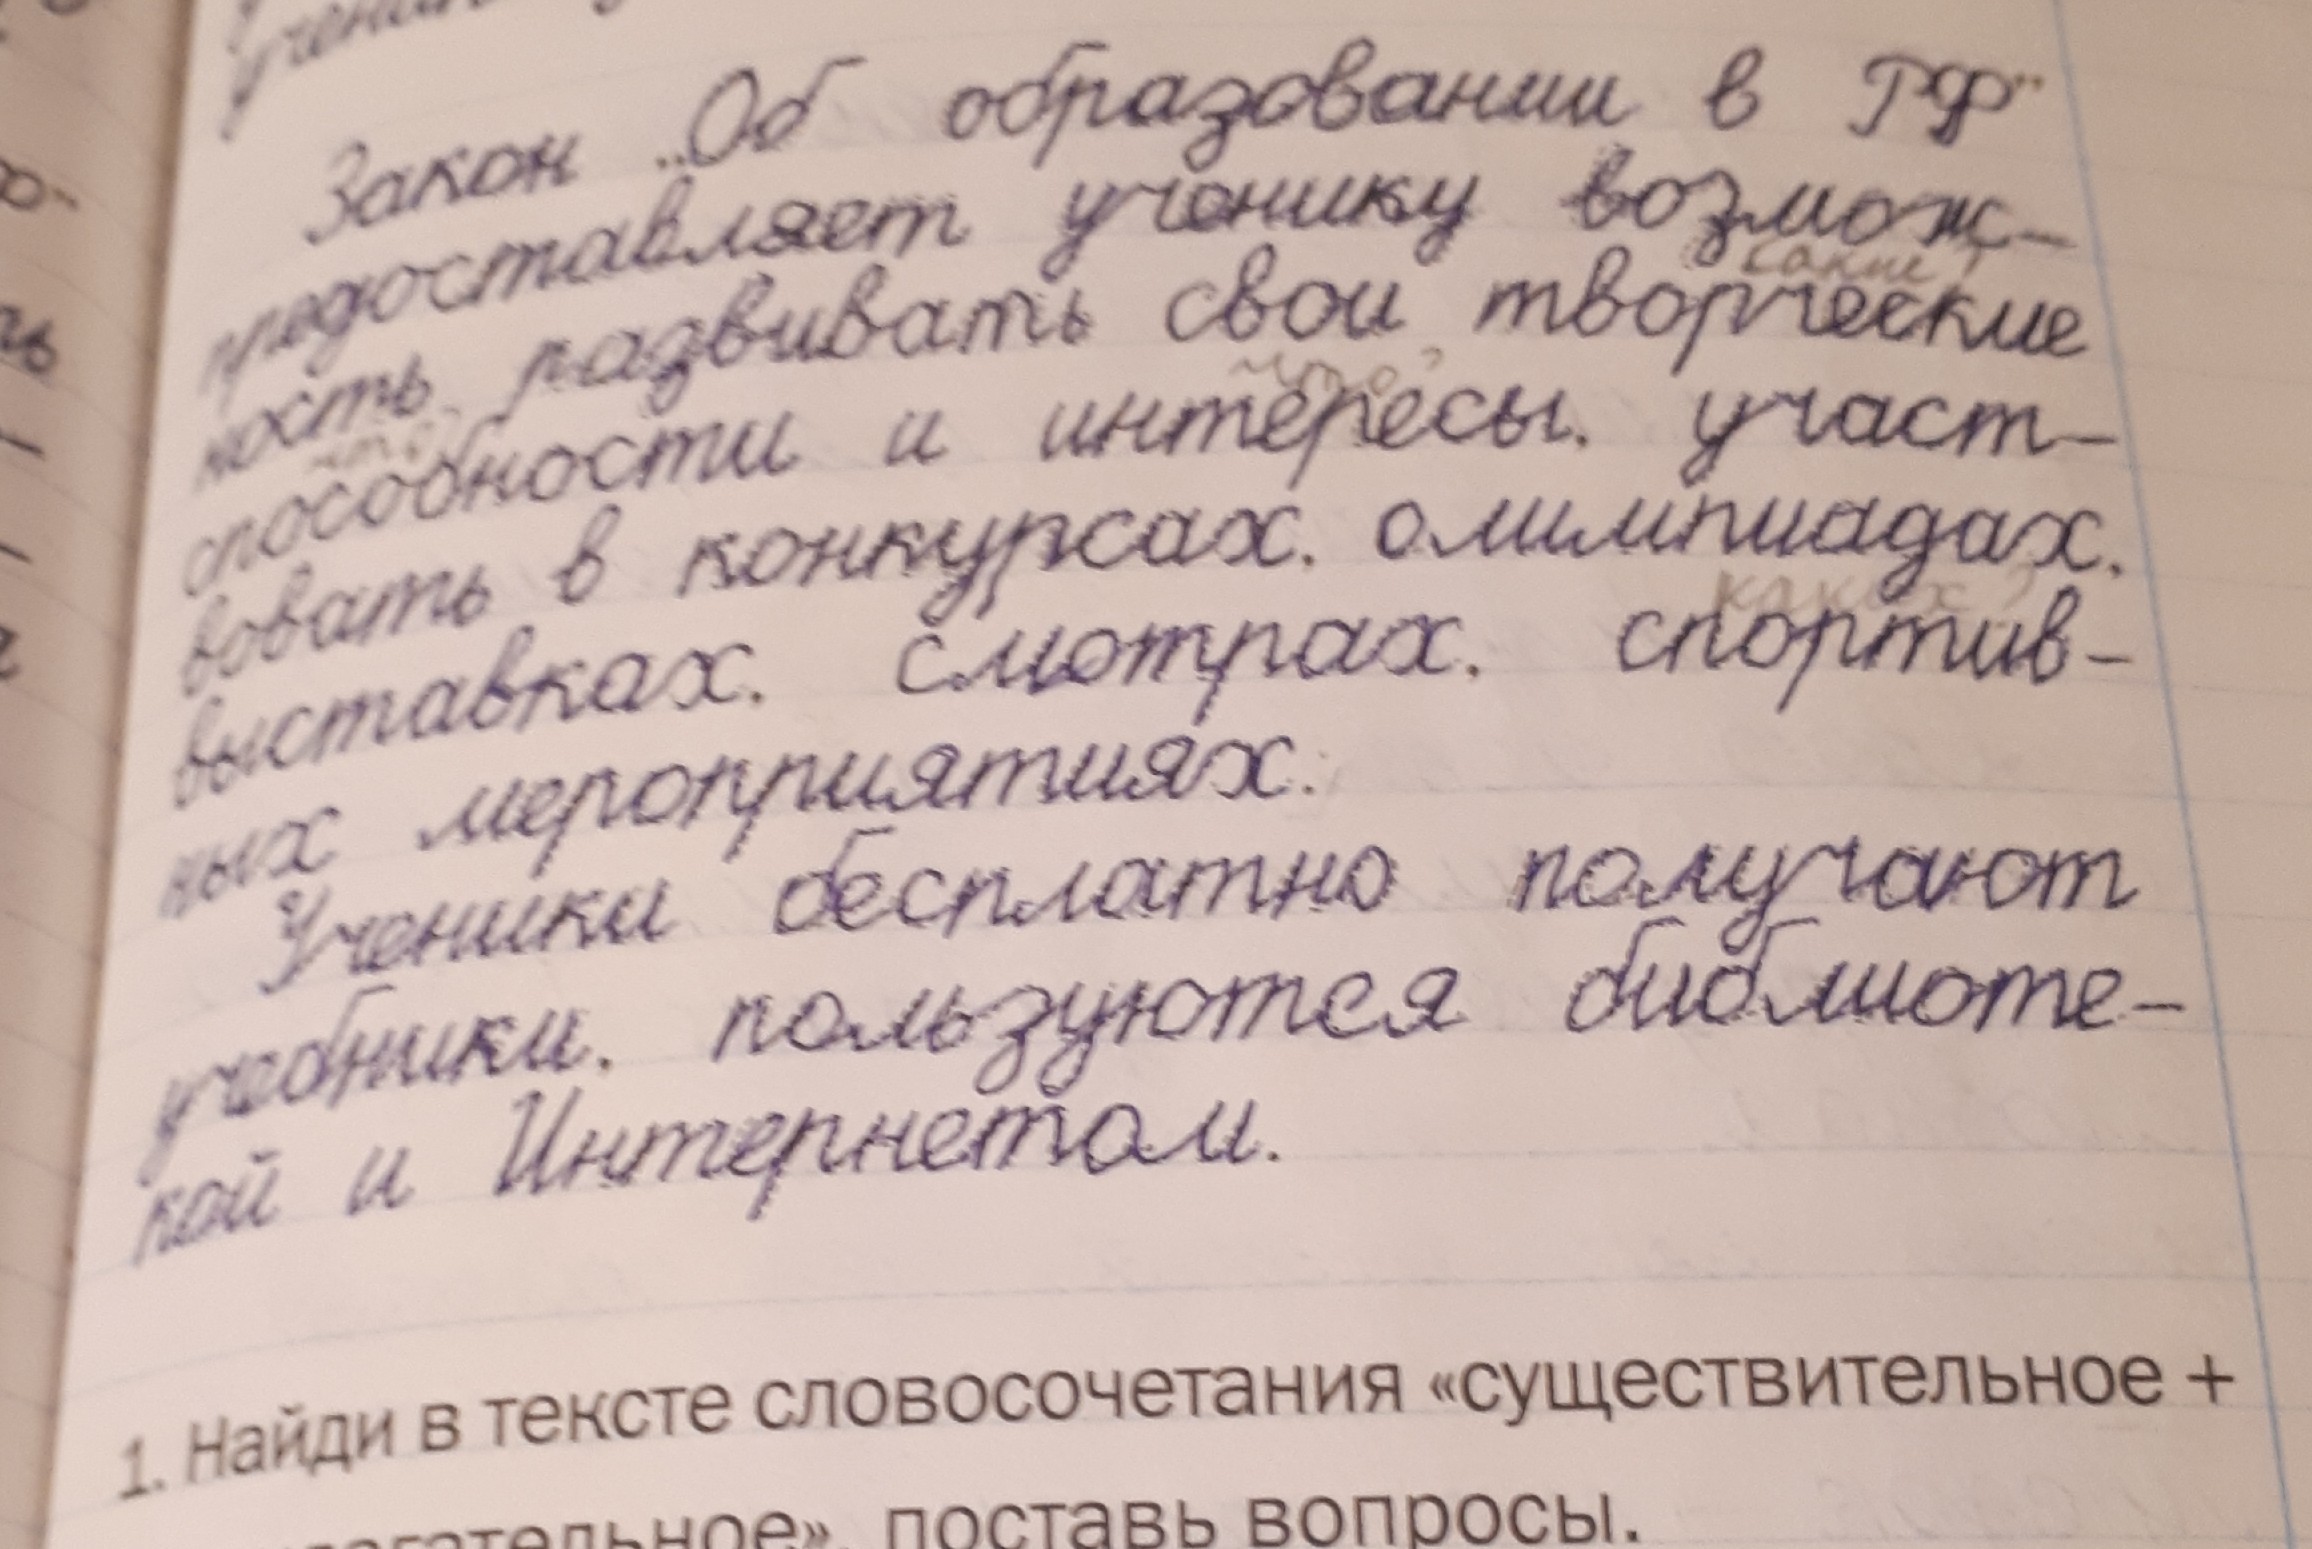 Закон „Об образовании в РФ"
предоставляет ученику возмож-
какие?
ность развивать свои творческие
что? что?
способности и интересы. участ-
вовать в конкурсах. олимпиадах.
каких?
выставках. смотрах. спортив-
ных мероприятиях.
Ученики бесплатно получают
учебники. пользуются библиоте-
кой и Интернетом.
1. Найди в тексте словосочетания «существительное +
поставь вопросы.